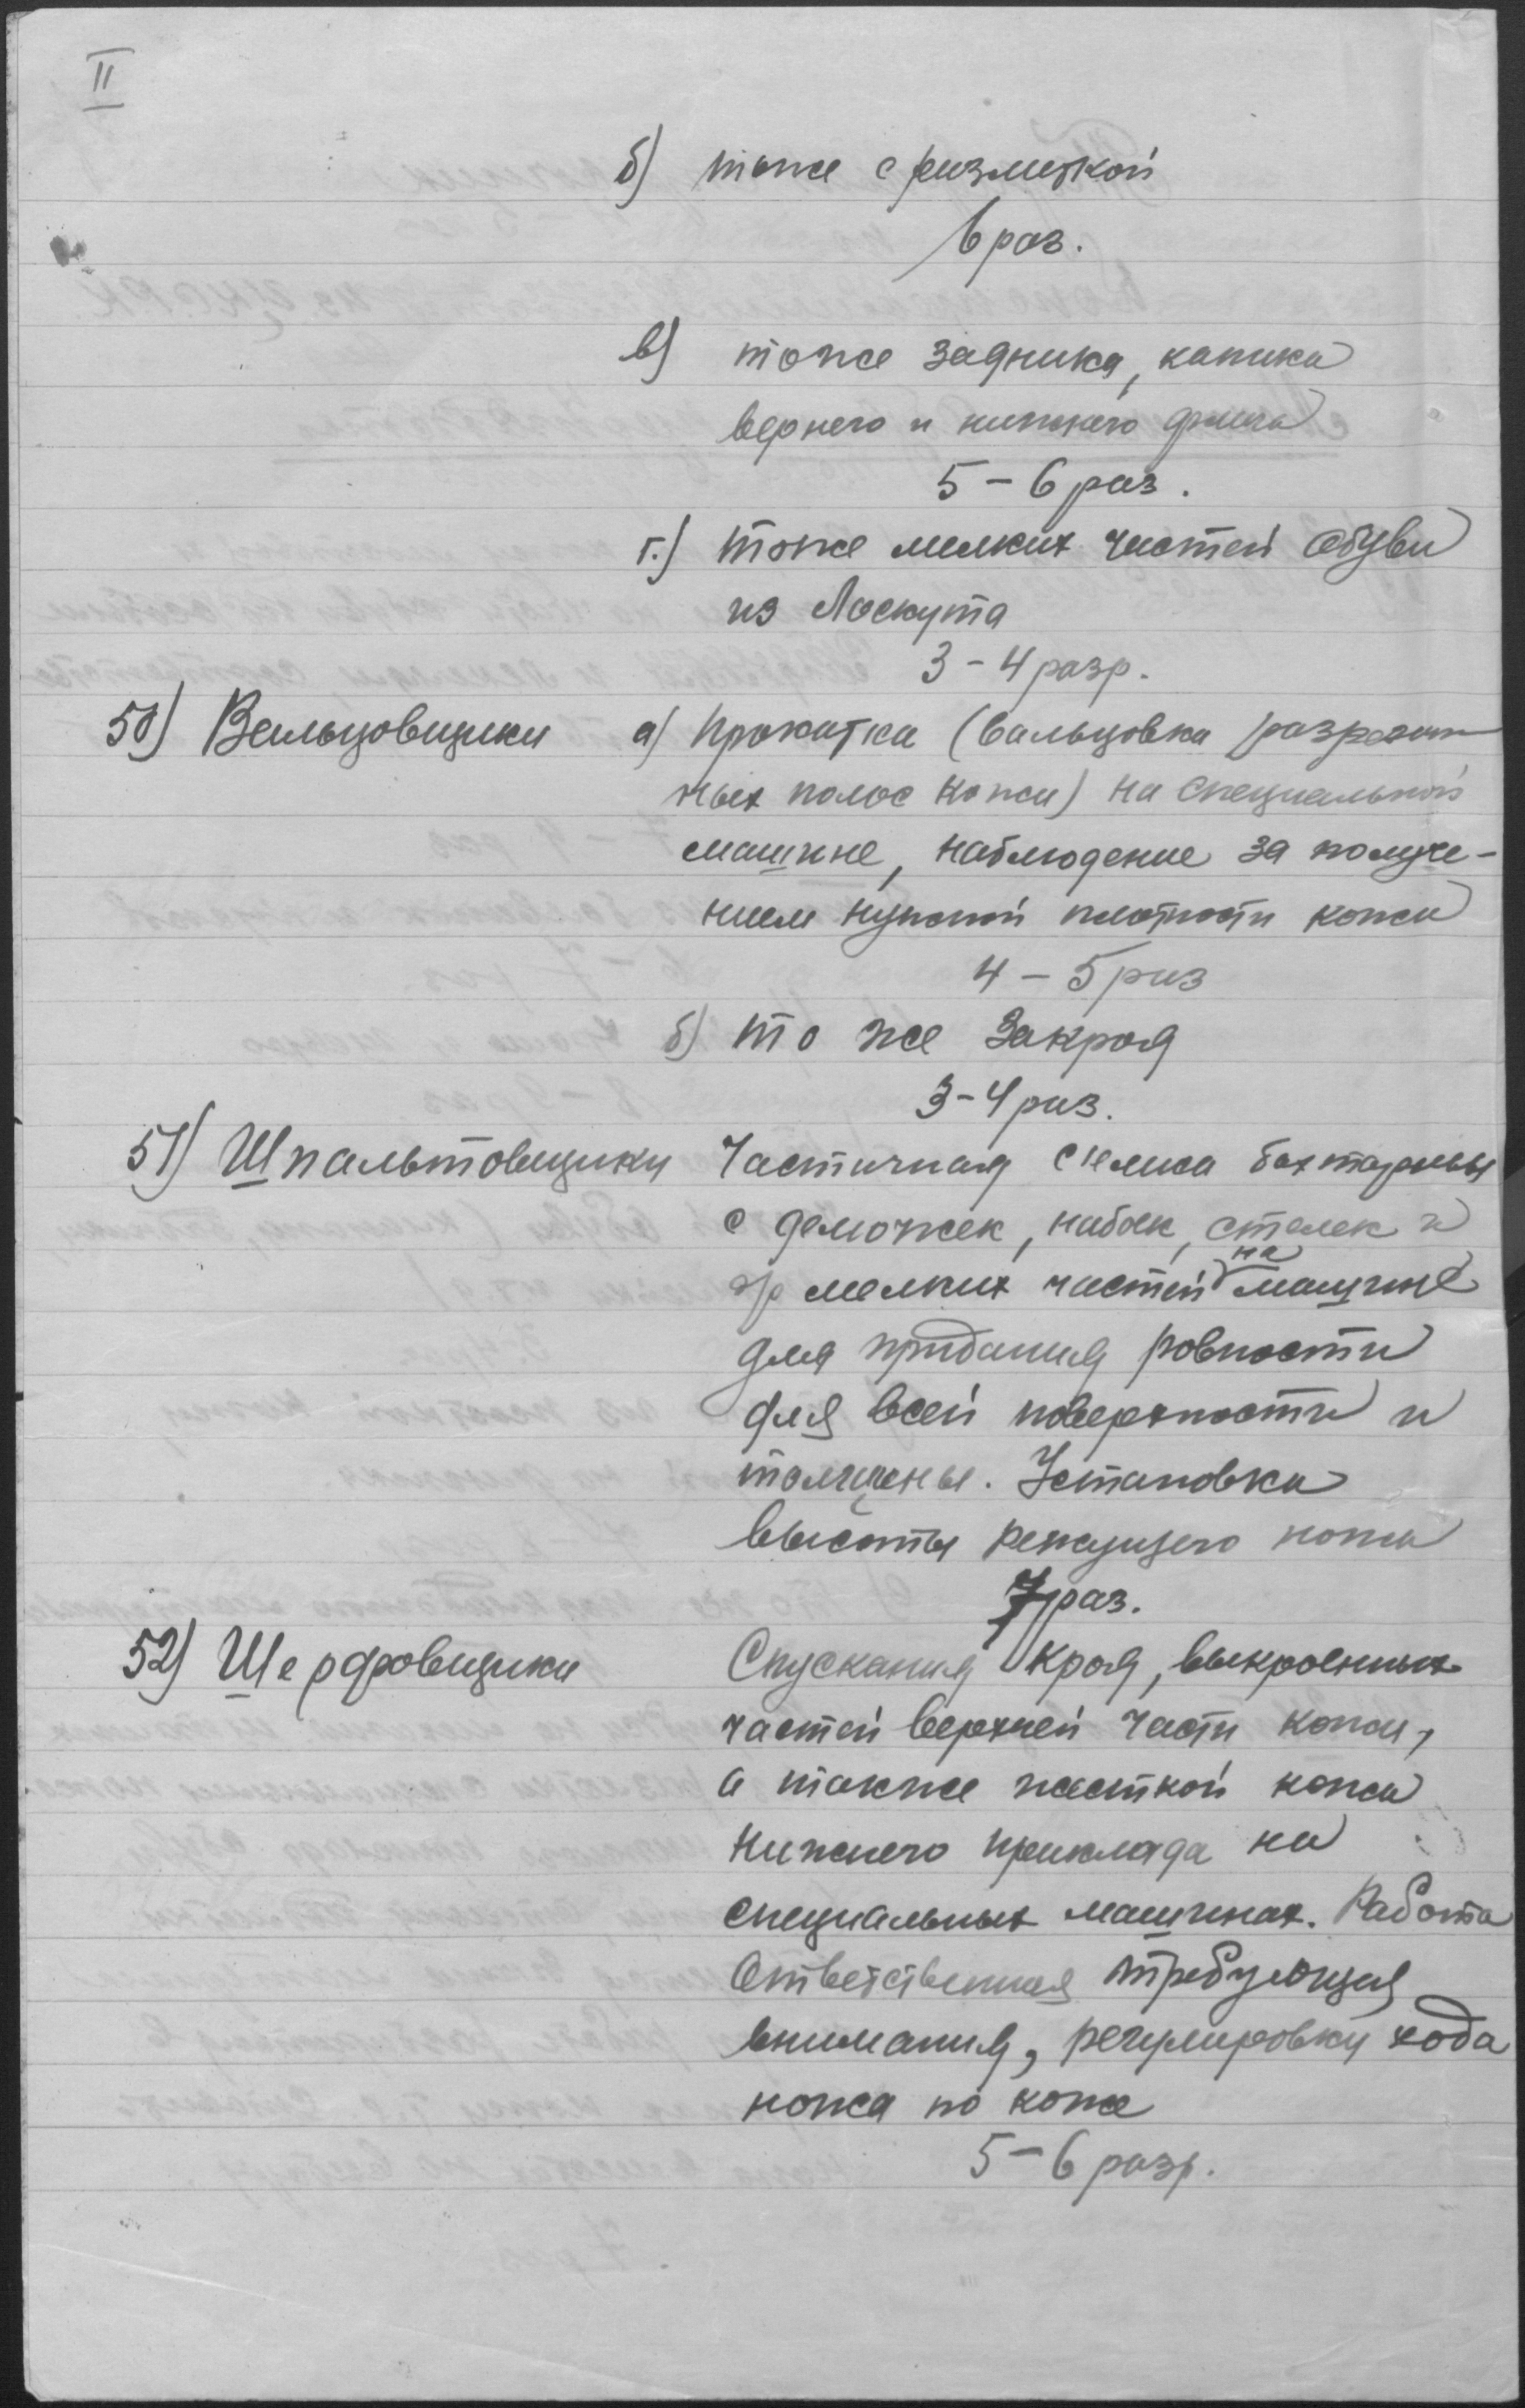 II
б) тоже с разметкой
6 раз.
в) тоже задника, капика
верхнего и нижнего флика
5 – 6 раз.
г.) тоже мелких частей обуви
из Лоскута
3 – 4 разр.
50) Вальцовщики а) Прокатка (вальцовка разрезан
ных полос кожи) на специальной
машине, наблюдение за получе-
нием нужной плотности кожи
4 – 5 раз
б) то же Закроя
3 – 4 раз.
51) Шпальтовщики Частичная съемка бахтармы
с деложек, набоек, стелек и
др мелких частей на машине
для придания ровности
для всей поверхности и
толщины. Установка
высоты режущего ножа
7 раз.
52) Шерфовщики Спускания края, выкроенных
частей верхней части кожи,
а также жесткой кожи
нижнего приклада на
специальных машинах. Работа
ответственная требующая
внимания, регулировку хода
ножа по коже
5 – 6 разр.